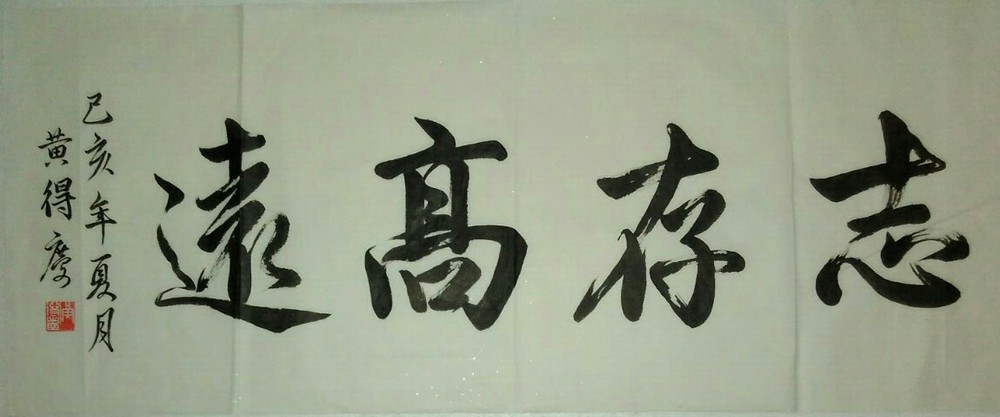 志存髙遠
己亥年夏月
黄得慶